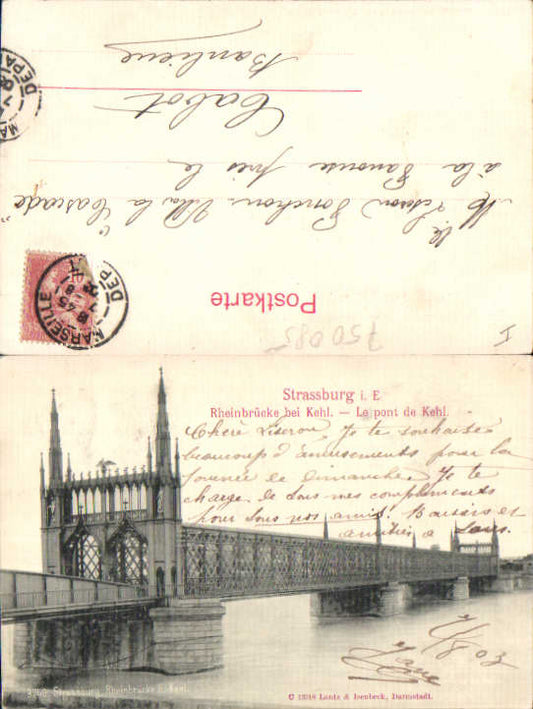 Postkarte
Mlle Liseron Ponchon Villa la "Cascade"
à la Panouse près le
Cabot
Banlieue
MARSEILLE
DEPART
750085
I
Strassburg i. E
Rheinbrücke bei Kehl. — Le pont de Kehl.
Chère Liseron, Je te souhaite
beaucoup d'amusements pour la
journée de Dimanche. Je te
charge de tous mes compliments
pour tous nos amis. Baisers et
amitiés à tous.
7/8 03
3768 Strassburg, Rheinbrücke b. Kehl.
© 13218 Lautz & Isenbeck, Darmstadt.